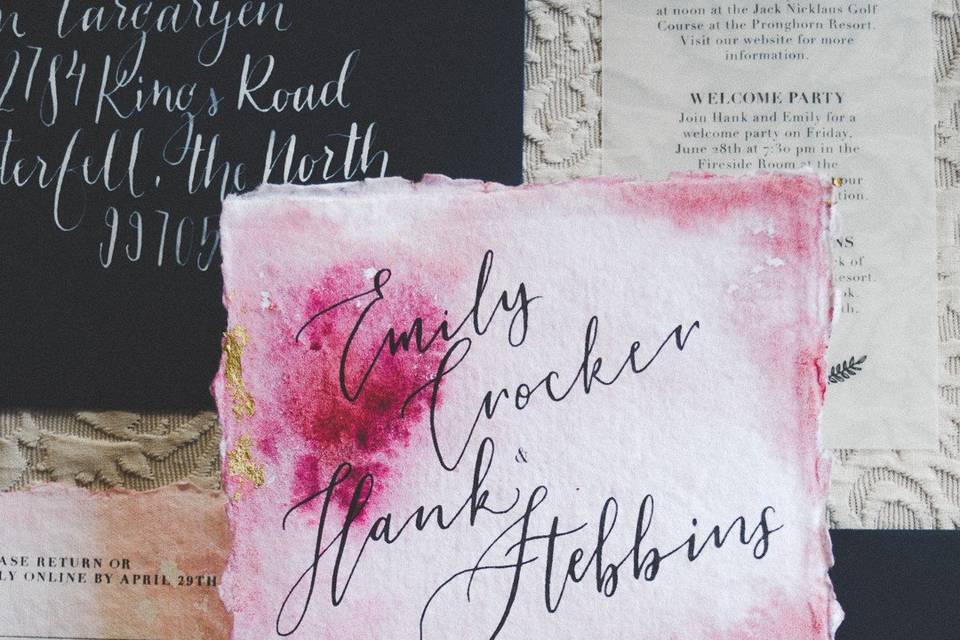 Targaryen
2784 Kings Road
the North
99705
at noon at the Jack Nicklaus Golf
Course at the Pronghorn Resort.
Visit our website for more
information.
WELCOME PARTY
Join Hank and Emily for a
welcome party on Friday,
June 28th at 7:30 pm in the
Fireside Room at the
Emily
Crocker
&
Hank
Stebbins
RETURN OR
ONLINE BY APRIL 29TH